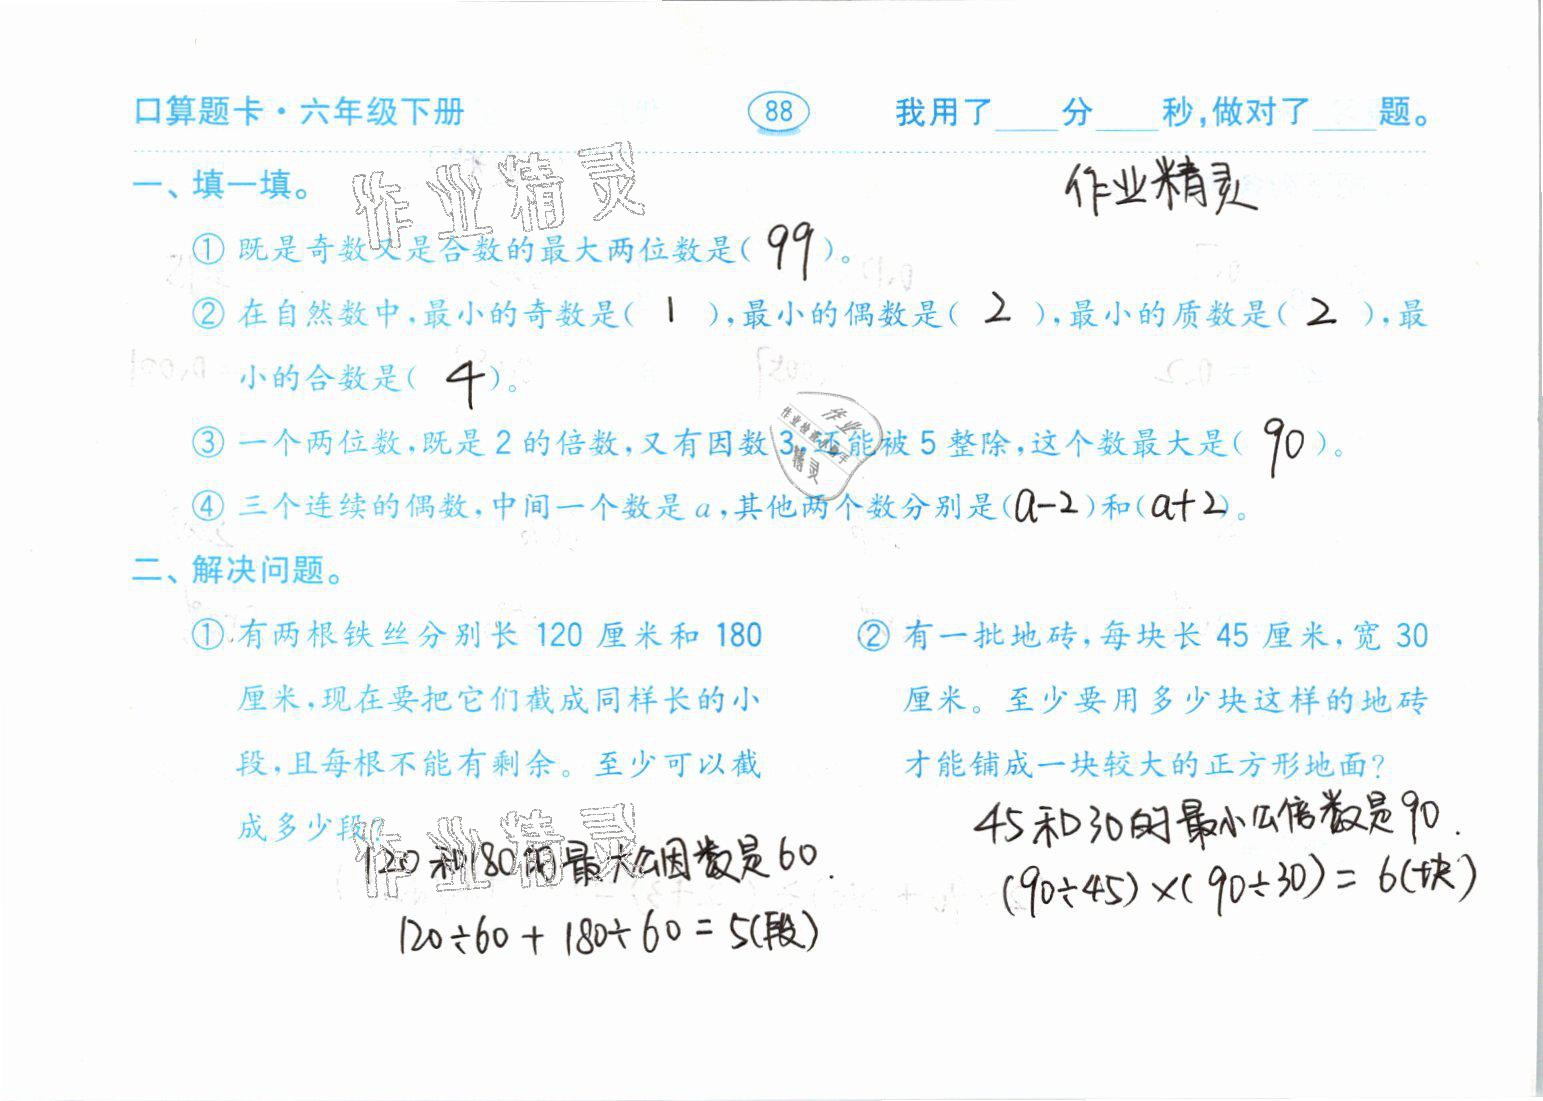 口算题卡·六年级下册 88 我用了____分____秒,做对了____题。
作业精灵
一、填一填。 作业精灵
① 既是奇数又是合数的最大两位数是( 99 )。
② 在自然数中,最小的奇数是( 1 ),最小的偶数是( 2 ),最小的质数是( 2 ),最
小的合数是( 4 )。
作业
作业检查小助手
精灵
③ 一个两位数,既是2的倍数,又有因数3,还能被5整除,这个数最大是( 90 )。
④ 三个连续的偶数,中间一个数是a,其他两个数分别是(a-2)和(a+2)。
二、解决问题。
① 有两根铁丝分别长 120 厘米和 180
厘米,现在要把它们截成同样长的小
段,且每根不能有剩余。至少可以截
成多少段?
作业精灵
120和180的最大公因数是60.
120÷60+180÷60=5(段)
② 有一批地砖,每块长 45 厘米,宽 30
厘米。至少要用多少块这样的地砖
才能铺成一块较大的正方形地面?
45和30的最小公倍数是90.
(90÷45)×(90÷30)=6(块)